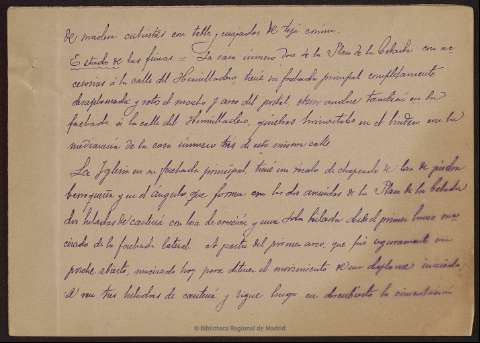 de madera cubiertos con tabla y cuajados de teja comun.
Estado de las fincas = La casa número dos de la Plaza de la Cebada con ac-
cesorias á la calle del Humilladero tiene su fachada principal completamente
desaplomada y roto el macho y arco del portal, otros tambien en la
fachada á la calle del Humilladero, quiebras en el linden con la
medianeria de la casa número tres de esta misma calle
La Iglesia en su fachada principal tiene un zócalo de chapado de losa de piedra
berroqueña y en el ángulo que forma con las dos de la Plaza de la Cebada
dos hiladas de cantería con losa de erección y una sola hilada desde el primer hueco ma-
cizado de la fachada lateral. A partir del primer arco, que fué seguramente un
poche abierto, macizado hoy para detener el movimiento de un desplome iniciado,
á ver tres hiladas de cantería y sigue luego en descubierto la cimentacion
© Biblioteca Regional de Madrid